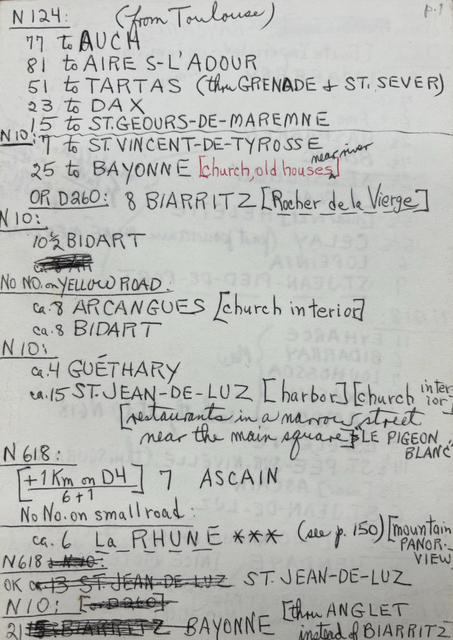 N124: (from Toulouse) p.1
77 to AUCH
81 to AIRE S-L'ADOUR
51 to TARTAS (thru GRENADE & ST. SEVER)
23 to DAX
15 to ST.GEOURS-DE-MAREMNE
N10: 7 to ST.VINCENT-DE-TYROSSE
25 to BAYONNE [church, old houses near river]
OR D260: 8 BIARRITZ [Rocher de la Vierge]
N10:
10½ BIDART
No NO. on YELLOW ROAD:
ca. 8 ARCANGUES [church interior]
ca. 8 BIDART
N10:
ca. 4 GUÉTHARY
ca. 15 ST. JEAN-DE-LUZ [harbor] [church interior]
[restaurants in a narrow street
near the main square] "LE PIGEON BLANC"
N618:
[+1 Km on D4] 7 ASCAIN
6+1
No No. on small road:
ca. 6 La RHUNE *** (see p. 150) [mountain PANOR. VIEW]
N618 N10:
OK ca 13 ST. JEAN-DE-LUZ ST. JEAN-DE-LUZ
N10: [or D260]
21 BIARRITZ BAYONNE [thru ANGLET
instead of BIARRITZ]